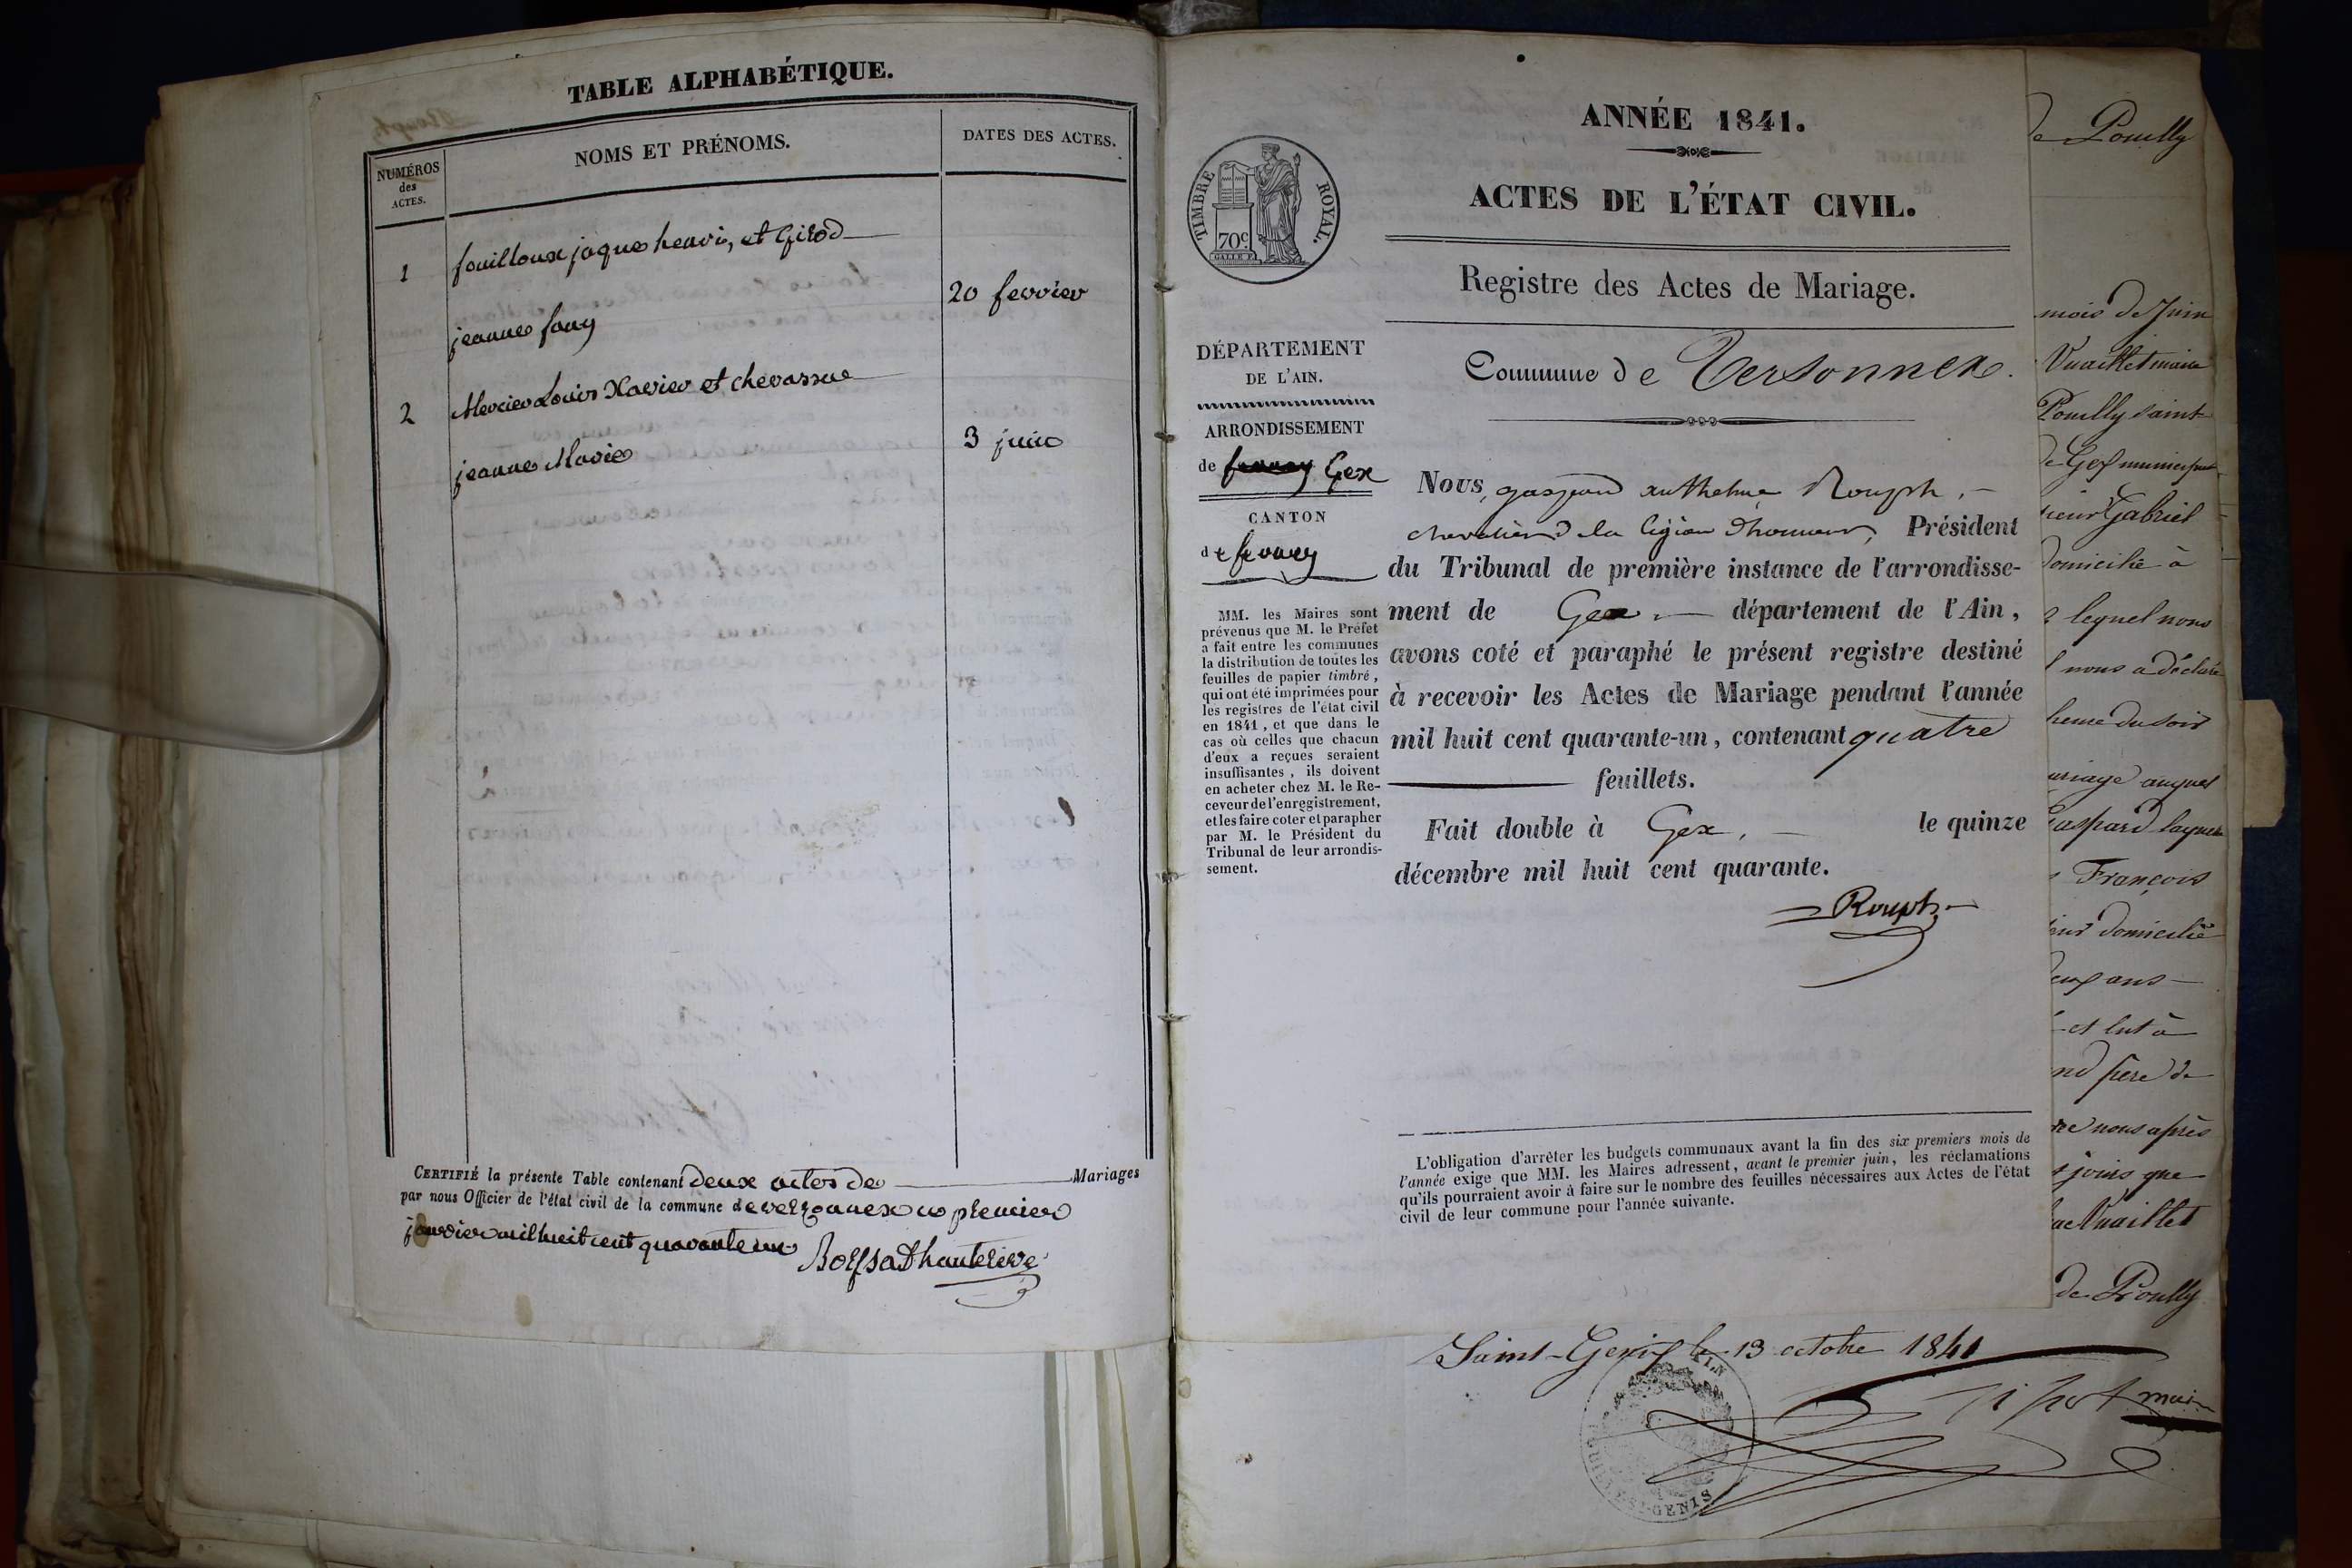 TABLE ALPHABÉTIQUE.
NUMÉROS
des
ACTES.
NOMS ET PRÉNOMS.
DATES DES ACTES.
1
fouilloux jaques henri, et Girod
jeanne fany
20 fevrier
2
Mercier Louis Xavier et chevassue
jeanne Marie
3 juin
CERTIFIÉ la présente Table contenant deux actes de Mariages
par nous Officier de l'état civil de la commune de versonnex ce premier
janvier mil huit cent quarante un
ANNÉE 1841.
ACTES DE L'ÉTAT CIVIL.
TIMBRE ROYAL.
70c
Registre des Actes de Mariage.
Commune de Versonnex.
DÉPARTEMENT
DE L'AIN.
ARRONDISSEMENT
de Gex
CANTON
de
MM. les Maires sont
prévenus que M. le Préfet
a fait entre les communes
la distribution de toutes les
feuilles de papier timbré,
qui ont été imprimées pour
les registres de l'état civil
en 1841, et que dans le
cas où celles que chacun
d'eux a reçues seraient
insuffisantes, ils doivent
en acheter chez M. le Re-
ceveur de l'enregistrement,
et les faire coter et parapher
par M. le Président du
Tribunal de leur arrondis-
sement.
Nous, gaspard anthelme Rouph,
chevalier de la légion d'honneur, Président
du Tribunal de première instance de l'arrondisse-
ment de Gex département de l'Ain,
avons coté et paraphé le présent registre destiné
à recevoir les Actes de Mariage pendant l'année
mil huit cent quarante-un, contenant quatre
feuillets.
Fait double à Gex, le quinze
décembre mil huit cent quarante.
Rouph
L'obligation d'arrêter les budgets communaux avant la fin des six premiers mois de
l'année exige que MM. les Maires adressent, avant le premier juin, les réclamations
qu'ils pourraient avoir à faire sur le nombre des feuilles nécessaires aux Actes de l'état
civil de leur commune pour l'année suivante.
de Pouilly
mois de Juin
Vuaillet maire
Pouilly saint
de Gex
Gabriel
domicilié à
lequel nous
nous a déclaré
heure du soir
auquel
Gaspard
François
domicilié
ans
et lut à
père de
nous après
jours que
Vuaillet
de Pouilly
Saint-Genis le 13 octobre 1841
maire
GENIS